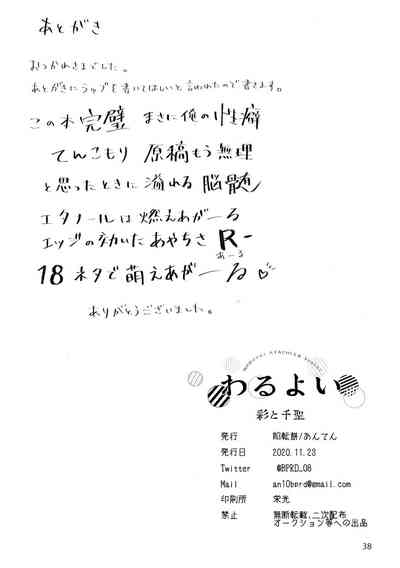 あとがき
おつかれさまでした。
あとがきにラップを書いてほしいと言われたので書きます。
この本 完璧 まさに俺の性癖
てんこもり 原稿もう無理
と思ったときに溢れる脳髄
エタノールは燃えあがーる
エッジの効いたあやちさ R-
あーる
18 ネタで萌えあがーる♡
ありがとうございました。
わるよい
彩と千聖
発行 昭転餅/あんてん
発行日 2020.11.23
Twitter @BPRD_08
Mail an10bprd@gmail.com
印刷所 栄光
禁止 無断転載、二次配布
オークション等への出品
38